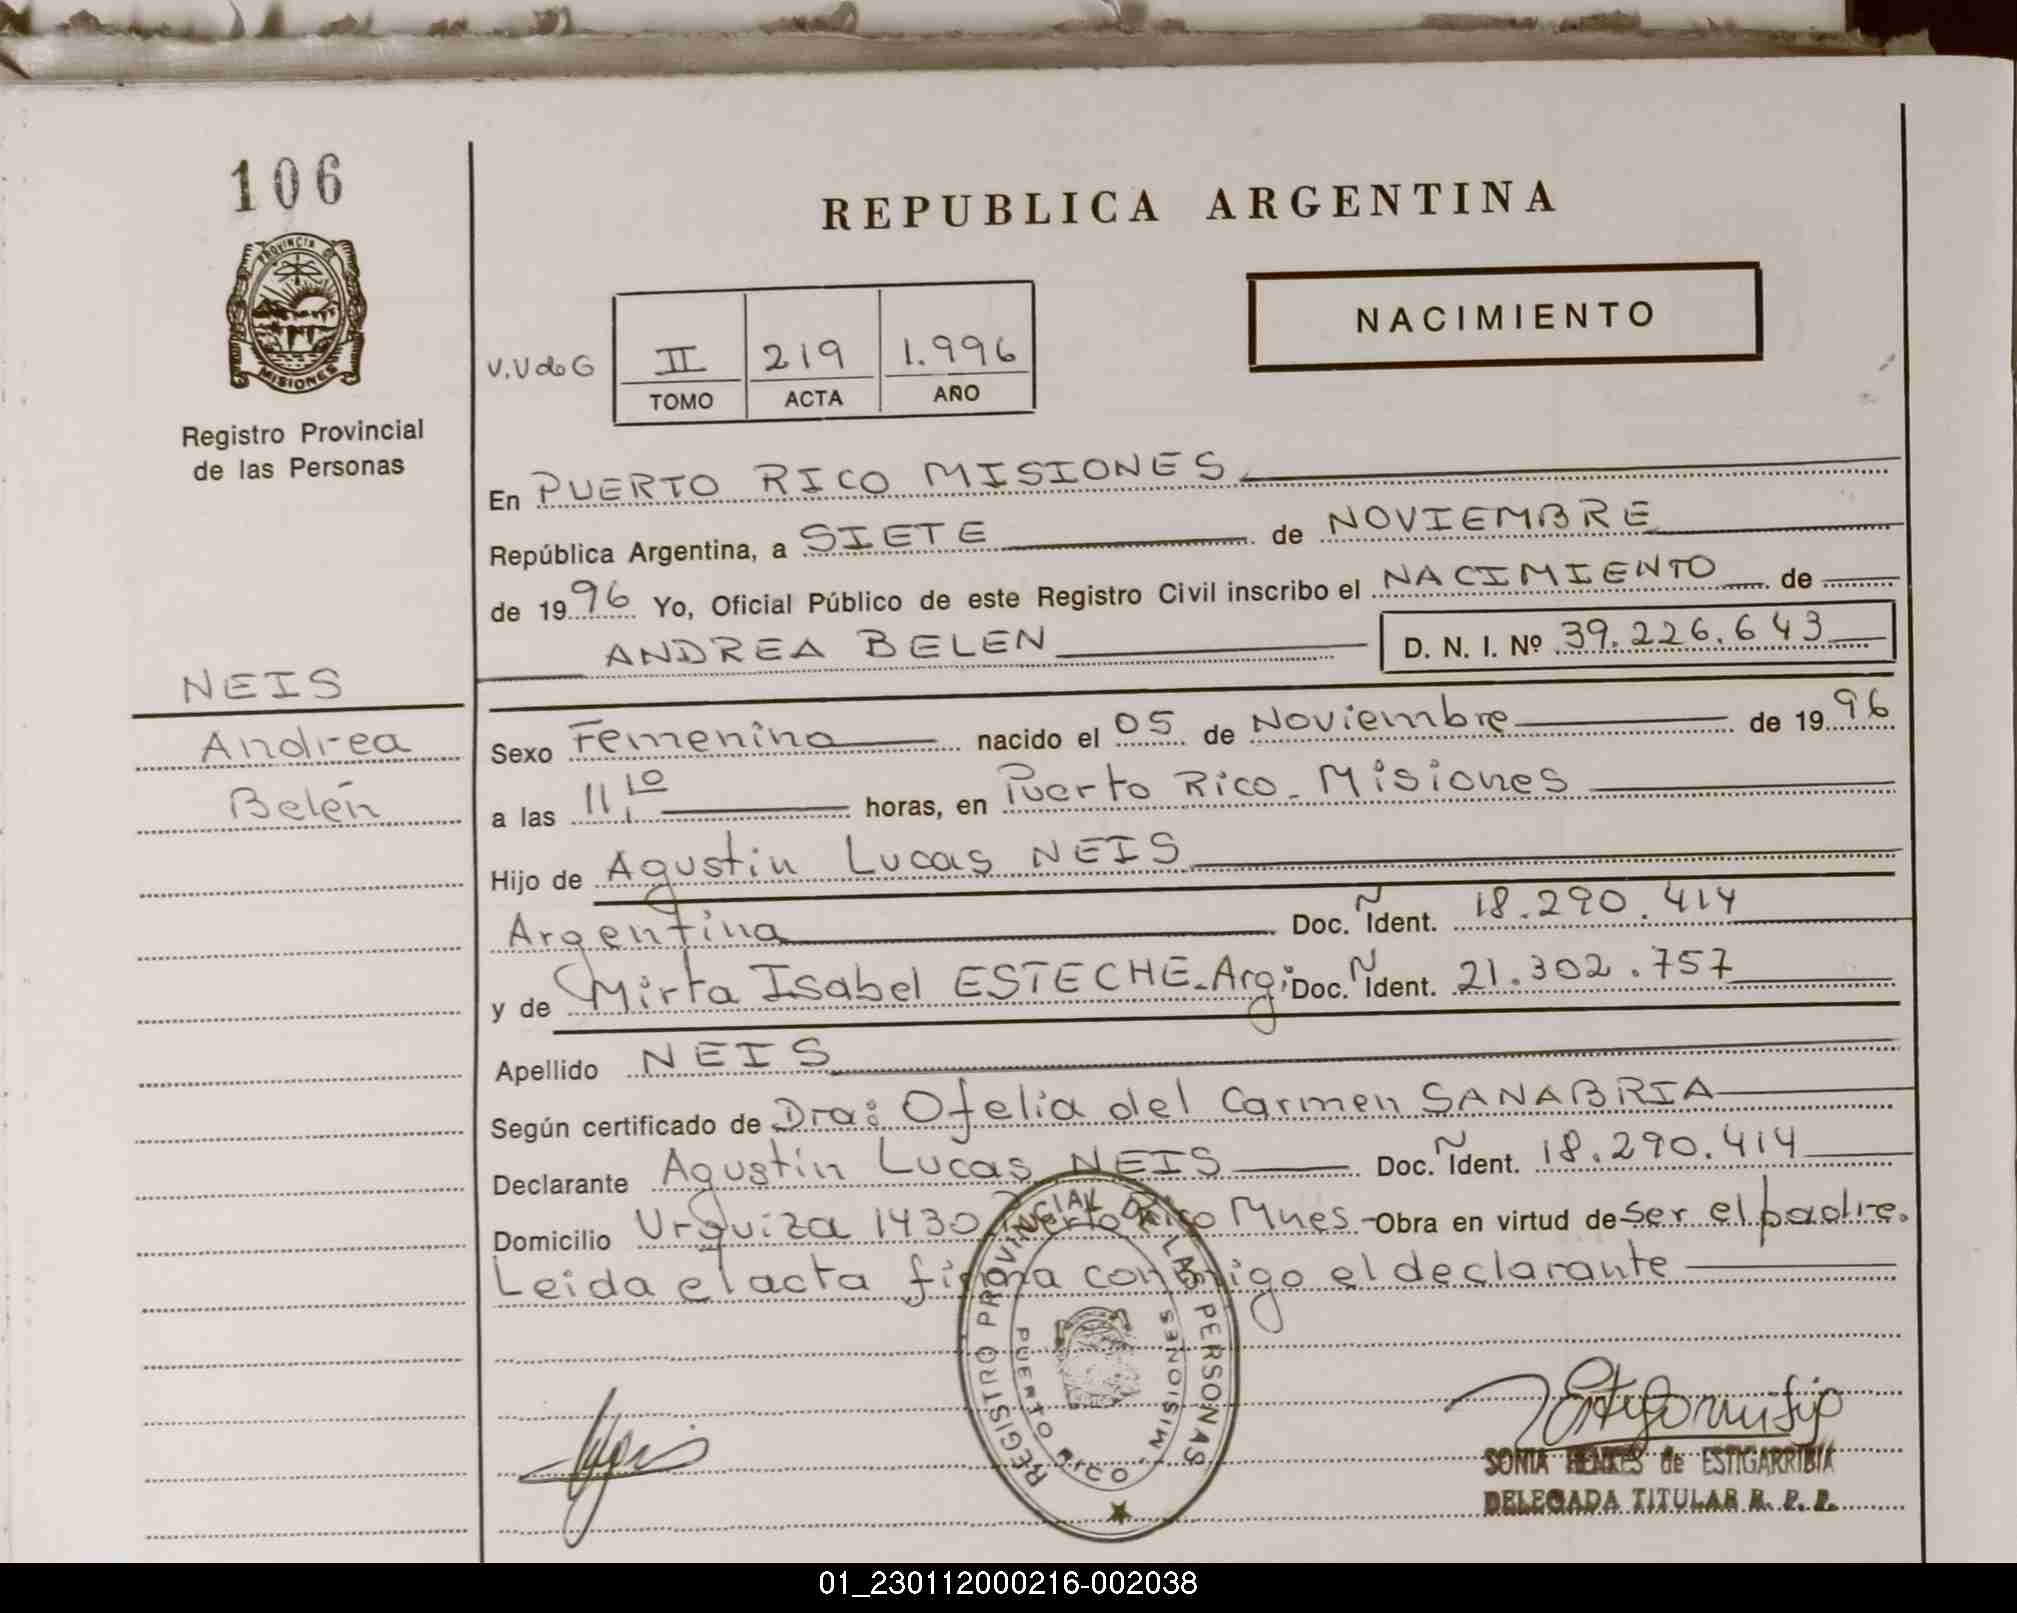 106
REPUBLICA ARGENTINA
PROVINCIA DE
MISIONES
NACIMIENTO
V.V de G
II 219 1.996
TOMO ACTA AÑO
Registro Provincial
de las Personas
En PUERTO RICO MISIONES
República Argentina, a SIETE de NOVIEMBRE
de 1996 Yo, Oficial Público de este Registro Civil inscribo el NACIMIENTO de
ANDREA BELEN D. N. I. Nº 39.226.643
NEIS
Andrea
Belén
Sexo Femenino nacido el 05 de Noviembre de 1996
a las 11,10 horas, en Puerto Rico - Misiones
Hijo de Agustin Lucas NEIS
Argentina Doc. Ñ Ident. 18.290.414
y de Mirta Isabel ESTECHE - Arg; Doc. Ñ Ident. 21.302.757
Apellido NEIS
Según certificado de Dra: Ofelia del Carmen SANABRIA
Declarante Agustin Lucas NEIS Doc. Ñ Ident. 18.290.414
Domicilio Urquiza 1430 Puerto Rico Mnes - Obra en virtud de ser el padre.
Leida el acta firma conmigo el declarante
REGISTRO PROVINCIAL DE LAS PERSONAS
PUERTO RICO - MISIONES
SONIA de ESTIGARRIBIA
DELEGADA TITULAR R. P. P.
01_230112000216-002038